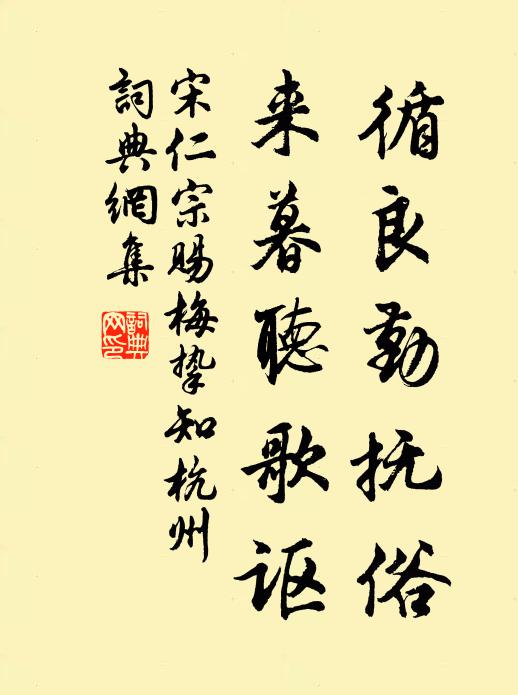 循良勤抚俗
来暮聽歌讴
宋仁宗賜梅挚知杭州
詞典網集
詞典网印